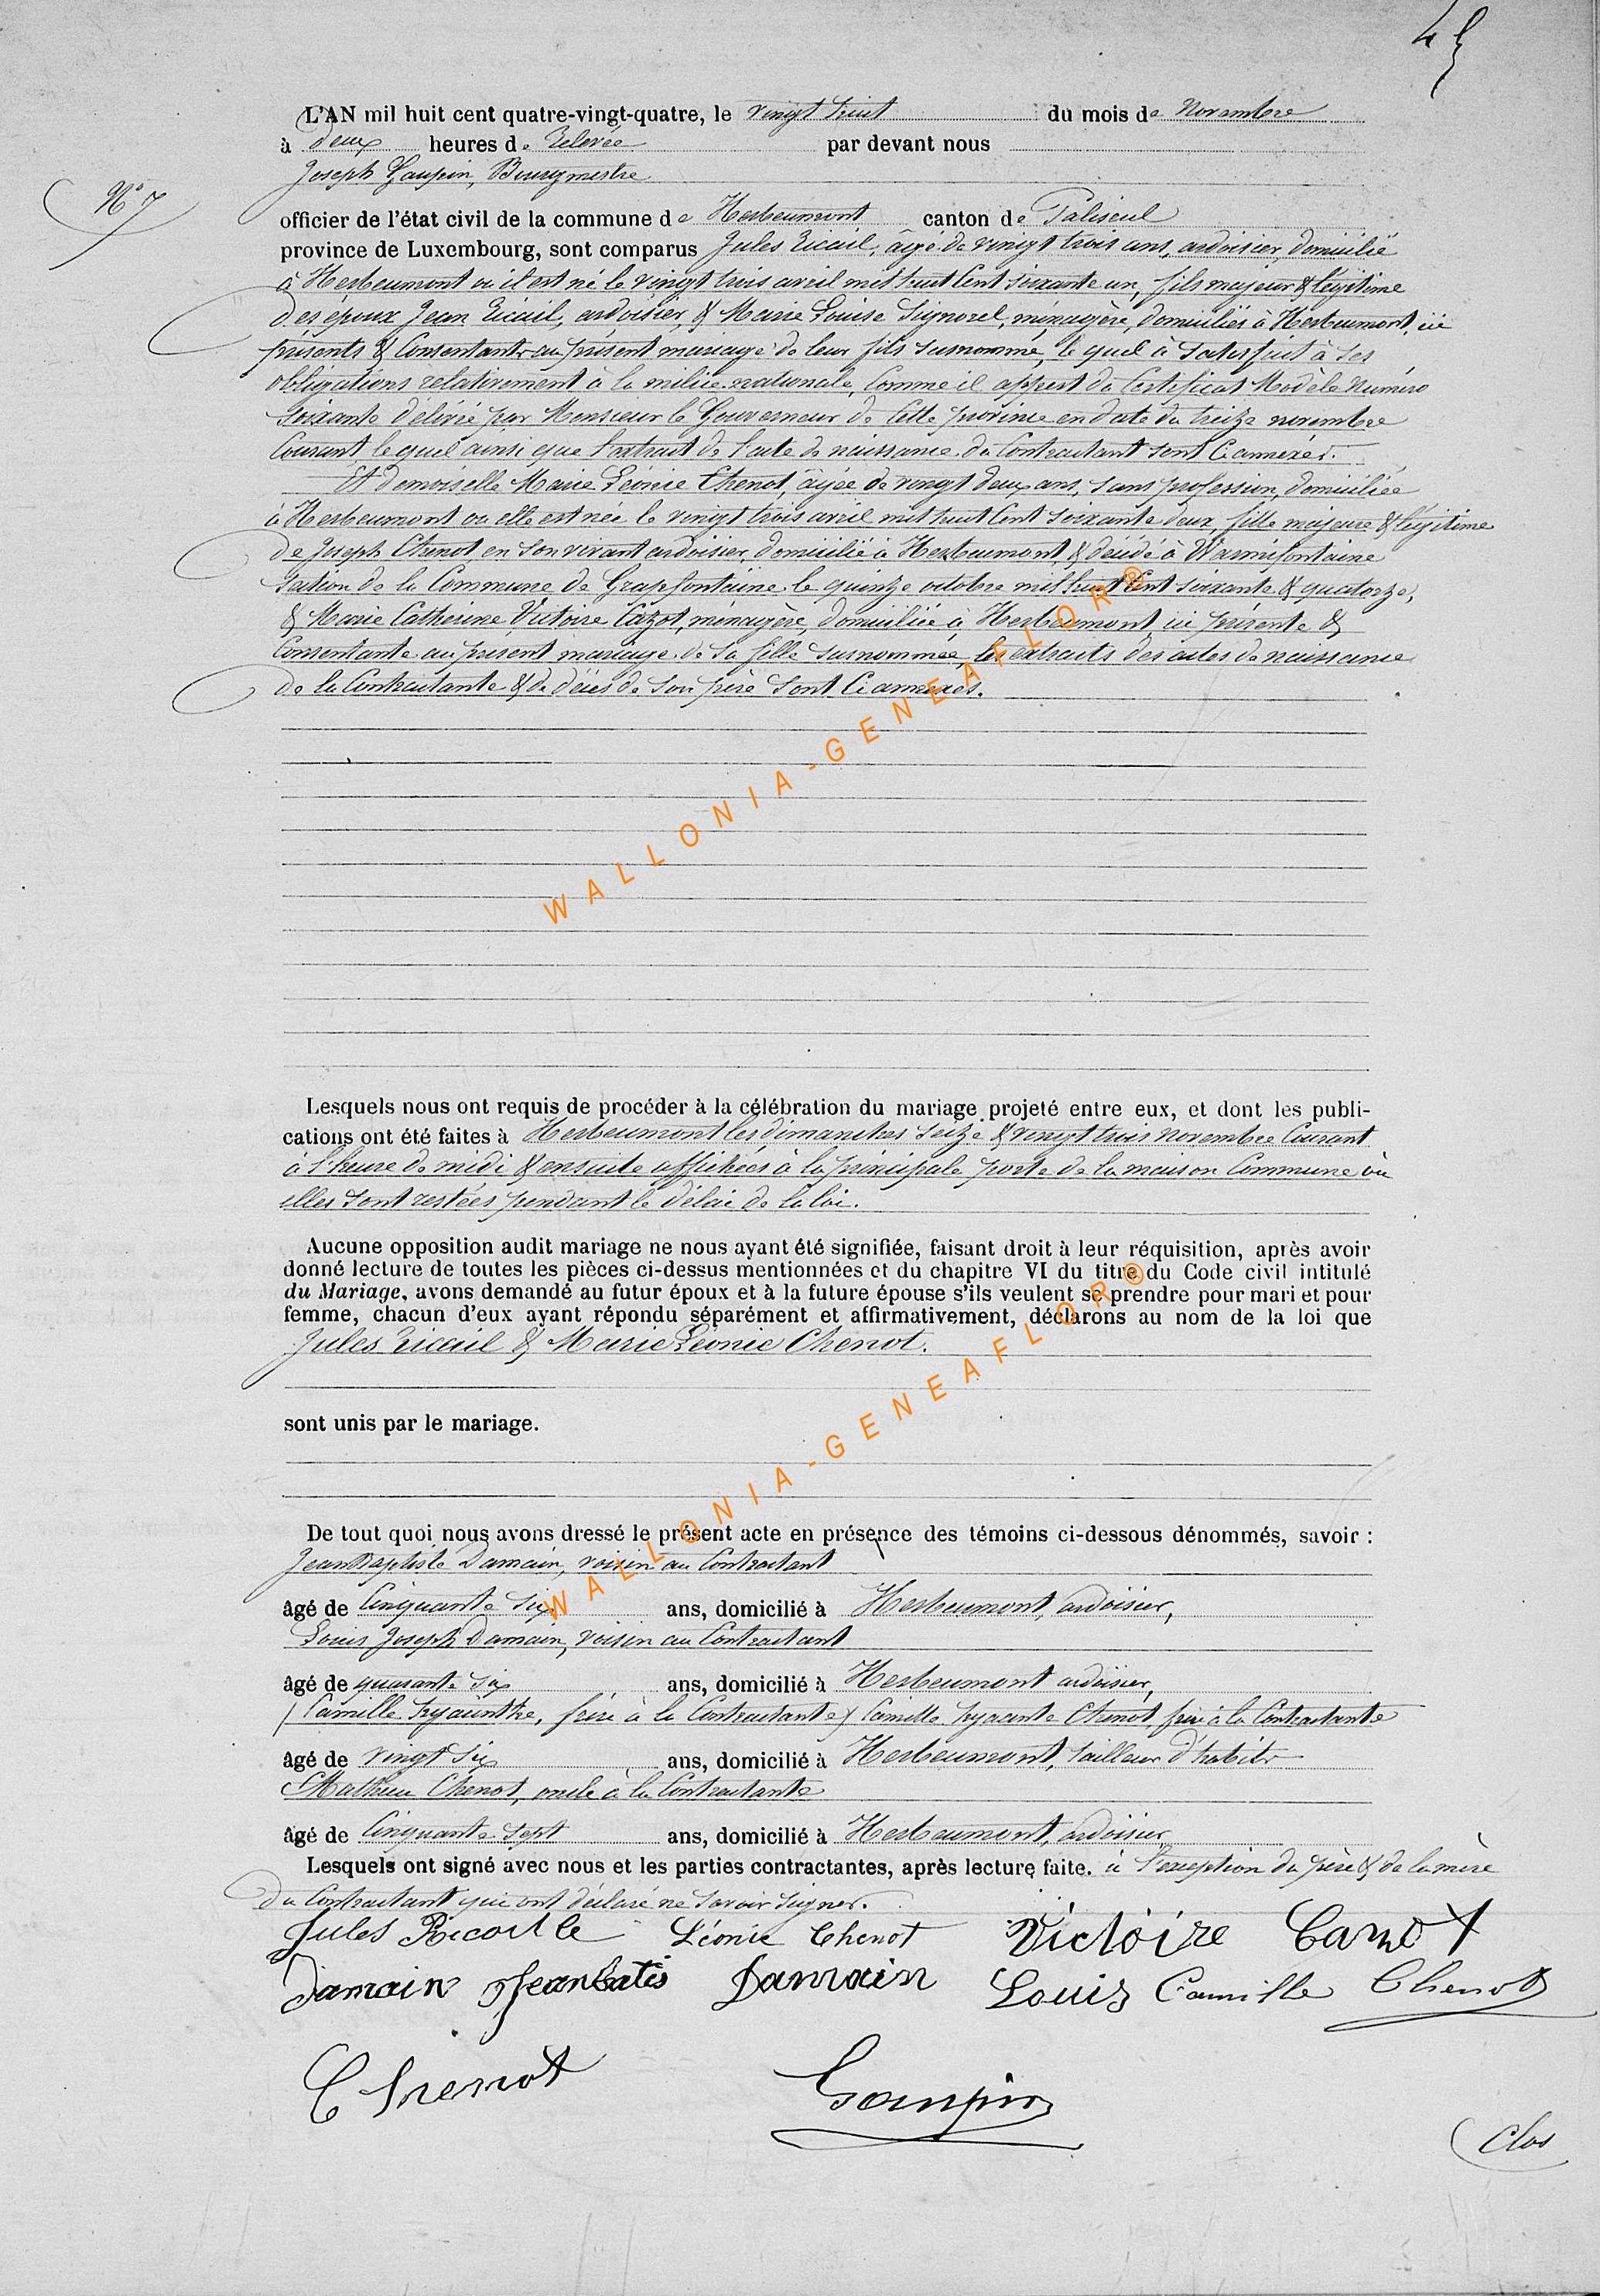 45
L'AN mil huit cent quatre-vingt-quatre, le vingt huit du mois de Novembre
à deux heures de Relevée par devant nous
Joseph Gaupin, Bourgmestre
N° 7
officier de l'état civil de la commune de Herbeumont canton de Paliseul
province de Luxembourg, sont comparus Jules Ricail, âgé de vingt trois ans, ardoisier, domicilié
à Herbeumont où il est né le vingt trois avril mil huit Cent soixante un, fils majeur & légitime
des époux Jean Ricail, ardoisier, & Marie Louise Signorel, ménagère, domiciliés à Herbeumont, ici
présents & Consentants au présent mariage de leur fils susnommé, le quel à Satisfait à ses
obligations relativement à la milice nationale, Comme il appert du Certificat Modèle Numéro
Soixante délivré par Monsieur le Gouverneur de Cette province en date du treize novembre
Courant le quel ainsi que l'extrait de l'acte de naissance du Contractant sont Ci annexés.
Et demoiselle Marie Léonie Chenot, âgée de vingt deux ans, sans profession, domiciliée
à Herbeumont où elle est née le vingt trois avril mil huit Cent soixante deux, fille majeure & légitime
de Joseph Chenot en son vivant ardoisier, domicilié à Herbeumont, & décédé à Warmifontaine
Section de la Commune de Grapfontaine le quinze octobre mil huit Cent soixante & quatorze,
& Marie Catherine Victoire Cazot, ménagère, domiciliée à Herbeumont, ici présente &
Consentante au présent mariage de sa fille susnommée, les extraits des actes de naissance
de la Contractante & de décès de son père sont Ci annexés.
WALLONIA-GENEAFLOR®
Lesquels nous ont requis de procéder à la célébration du mariage projeté entre eux, et dont les publi-
cations ont été faites à Herbeumont les dimanches seize & vingt trois Novembre Courant
à l'heure de midi & ensuite affichées à la principale porte de la maison Commune où
elles sont restées pendant le délai de la loi.
Aucune opposition audit mariage ne nous ayant été signifiée, faisant droit à leur réquisition, après avoir
donné lecture de toutes les pièces ci-dessus mentionnées et du chapitre VI du titre du Code civil intitulé
du Mariage, avons demandé au futur époux et à la future épouse s'ils veulent se prendre pour mari et pour
femme, chacun d'eux ayant répondu séparément et affirmativement, déclarons au nom de la loi que
Jules Ricail & Marie Léonie Chenot.
sont unis par le mariage.
WALLONIA-GENEAFLOR®
De tout quoi nous avons dressé le présent acte en présence des témoins ci-dessous dénommés, savoir :
Jean Baptiste Damain, voisin au Contractant
âgé de Cinquante six ans, domicilié à Herbeumont, ardoisier,
Louis Joseph Damain, voisin au Contractant
âgé de quarante six ans, domicilié à Herbeumont ardoisier,
(Camille hyacinthe, frère à la Contractante) Camille hyacante Chenot, frère à la Contractante
âgé de vingt six ans, domicilié à Herbeumont, tailleur d'habits
Mathieu Chenot, oncle à la Contractante
âgé de Cinquante sept ans, domicilié à Herbeumont, ardoisier,
Lesquels ont signé avec nous et les parties contractantes, après lecture faite. à l'exception du père & de la mère
du Contractant qui ont déclaré ne savoir signer.
Jules Ricaille Léonie Chenot Victoire Cazot
Damain Jeanbatis Damain Louis Camille Chenot
Chenot Gaupin
Clos